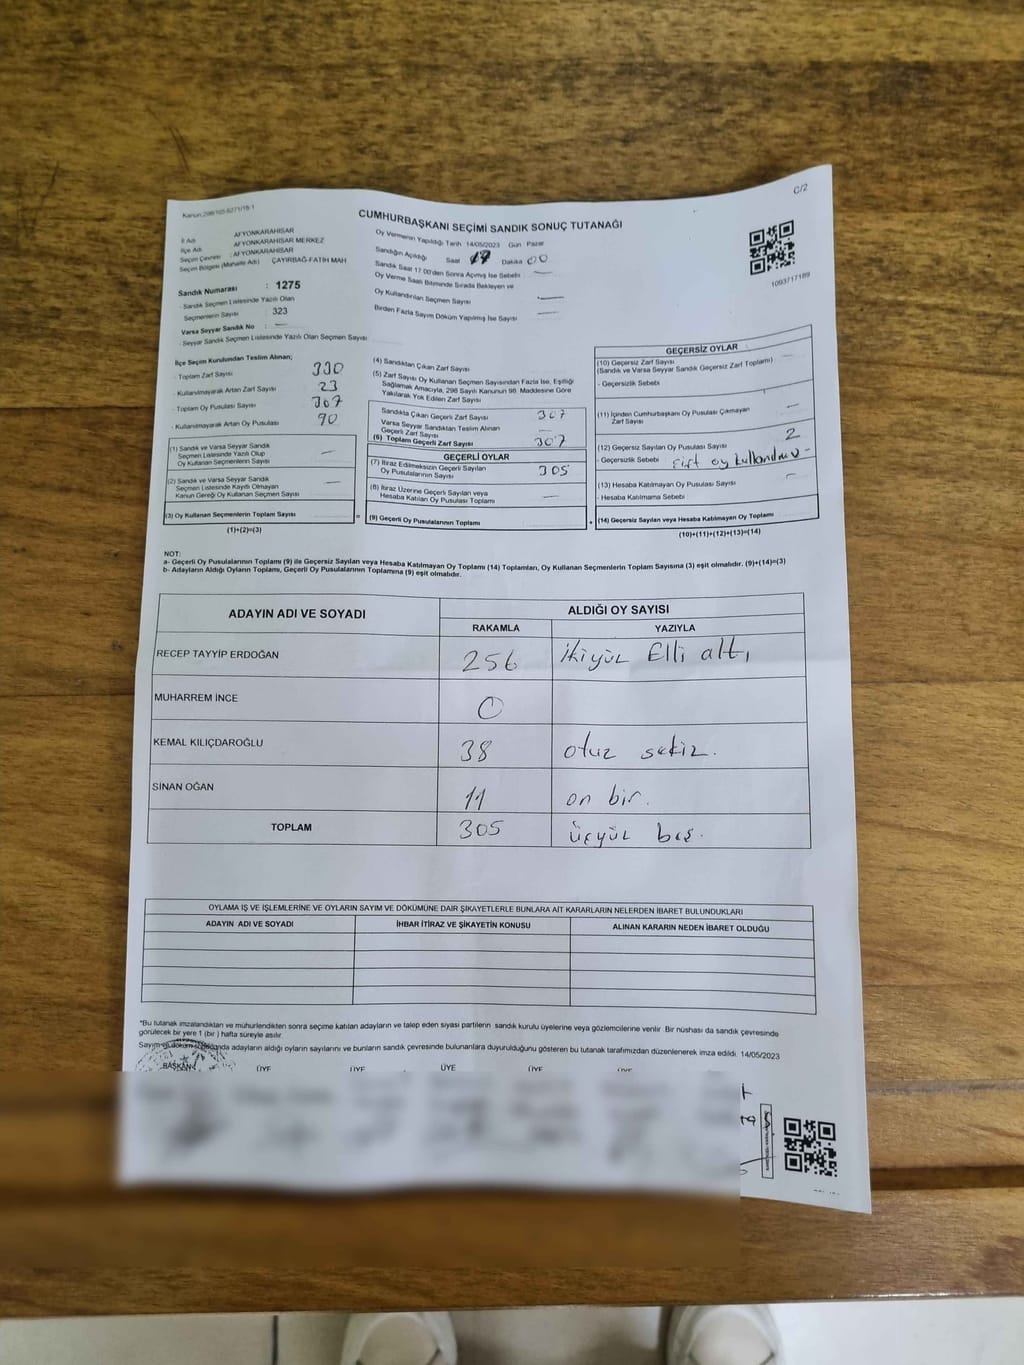 C/2
Kanun:298/105 6271/18/1
CUMHURBAŞKANI SEÇİMİ SANDIK SONUÇ TUTANAĞI
1093717189
İl Adı : AFYONKARAHİSAR
İlçe Adı : AFYONKARAHİSAR MERKEZ
Seçim Çevresi : AFYONKARAHİSAR
Seçim Bölgesi (Mahalle Adı) : ÇAYIRBAĞ-FATİH MAH
Sandık Numarası : 1275
- Sandık Seçmen Listesinde Yazılı Olan
Seçmenlerin Sayısı : 323
Varsa Seyyar Sandık No : —
- Seyyar Sandık Seçmen Listesinde Yazılı Olan Seçmen Sayısı
Oy Vermenin Yapıldığı Tarih 14/05/2023 Gün Pazar
Sandığın Açıldığı Saat 17 Dakika 00
Sandık Saat 17.00'den Sonra Açılmış İse Sebebi —
Oy Verme Saati Bitiminde Sırada Bekleyen ve
Oy Kullandırılan Seçmen Sayısı —
Birden Fazla Sayım Döküm Yapılmış İse Sayısı —
İlçe Seçim Kurulundan Teslim Alınan;
- Toplam Zarf Sayısı 330
- Kullanılmayarak Artan Zarf Sayısı 23
- Toplam Oy Pusulası Sayısı 307
- Kullanılmayarak Artan Oy Pusulası 90
(1) Sandık ve Varsa Seyyar Sandık
Seçmen Listesinde Yazılı Olup
Oy Kullanan Seçmenlerin Sayısı —
(2) Sandık ve Varsa Seyyar Sandık
Seçmen Listesinde Kayıtlı Olmayan
Kanun Gereği Oy Kullanan Seçmen Sayısı —
(3) Oy Kullanan Seçmenlerin Toplam Sayısı
(1)+(2)=(3)
(4) Sandıktan Çıkan Zarf Sayısı
(5) Zarf Sayısı Oy Kullanan Seçmen Sayısından Fazla İse, Eşitliği
Sağlamak Amacıyla, 298 Sayılı Kanunun 98. Maddesine Göre
Yakılarak Yok Edilen Zarf Sayısı
Sandıkta Çıkan Geçerli Zarf Sayısı 307
Varsa Seyyar Sandıktan Teslim Alınan
Geçerli Zarf Sayısı —
(6) Toplam Geçerli Zarf Sayısı 307
GEÇERLİ OYLAR
(7) İtiraz Edilmeksizin Geçerli Sayılan
Oy Pusulalarının Sayısı 305
(8) İtiraz Üzerine Geçerli Sayılan veya
Hesaba Katılan Oy Pusulası Toplamı —
= (9) Geçerli Oy Pusulalarının Toplamı +
GEÇERSİZ OYLAR
(10) Geçersiz Zarf Sayısı
(Sandık ve Varsa Seyyar Sandık Geçersiz Zarf Toplamı) —
- Geçersizlik Sebebi
(11) İçinden Cumhurbaşkanı Oy Pusulası Çıkmayan
Zarf Sayısı —
(12) Geçersiz Sayılan Oy Pusulası Sayısı 2
- Geçersizlik Sebebi Çift oy kullandırıv -
(13) Hesaba Katılmayan Oy Pusulası Sayısı —
- Hesaba Katılmama Sebebi
(14) Geçersiz Sayılan veya Hesaba Katılmayan Oy Toplamı
(10)+(11)+(12)+(13)=(14)
NOT:
a- Geçerli Oy Pusulalarının Toplamı (9) ile Geçersiz Sayılan veya Hesaba Katılmayan Oy Toplamı (14) Toplamları, Oy Kullanan Seçmenlerin Toplam Sayısına (3) eşit olmalıdır. (9)+(14)=(3)
b- Adayların Aldığı Oyların Toplamı, Geçerli Oy Pusulalarının Toplamına (9) eşit olmalıdır.
ADAYIN ADI VE SOYADI ALDIĞI OY SAYISI
RAKAMLA YAZIYLA
RECEP TAYYİP ERDOĞAN 256 ikiyüz Elli altı
MUHARREM İNCE 0
KEMAL KILIÇDAROĞLU 38 otuz sekiz.
SİNAN OĞAN 11 on bir.
TOPLAM 305 üçyüz beş.
OYLAMA İŞ VE İŞLEMLERİNE VE OYLARIN SAYIM VE DÖKÜMÜNE DAİR ŞİKAYETLERLE BUNLARA AİT KARARLARIN NELERDEN İBARET BULUNDUKLARI
ADAYIN ADI VE SOYADI İHBAR İTİRAZ VE ŞİKAYETİN KONUSU ALINAN KARARIN NEDEN İBARET OLDUĞU
"Bu tutanak imzalandıktan ve mühürlendikten sonra seçime katılan adayların ve talep eden siyasi partilerin sandık kurulu üyelerine veya gözlemcilerine verilir. Bir nüshası da sandık çevresinde
görülecek bir yere 1 (bir ) hafta süreyle asılır.
adayların aldığı oyların sayılarını ve bunların sandık çevresinde bulunanlara duyurulduğunu gösteren bu tutanak tarafımızdan düzenlenerek imza edildi. 14/05/2023
BAŞKAN ÜYE ÜYE ÜYE ÜYE ÜYE